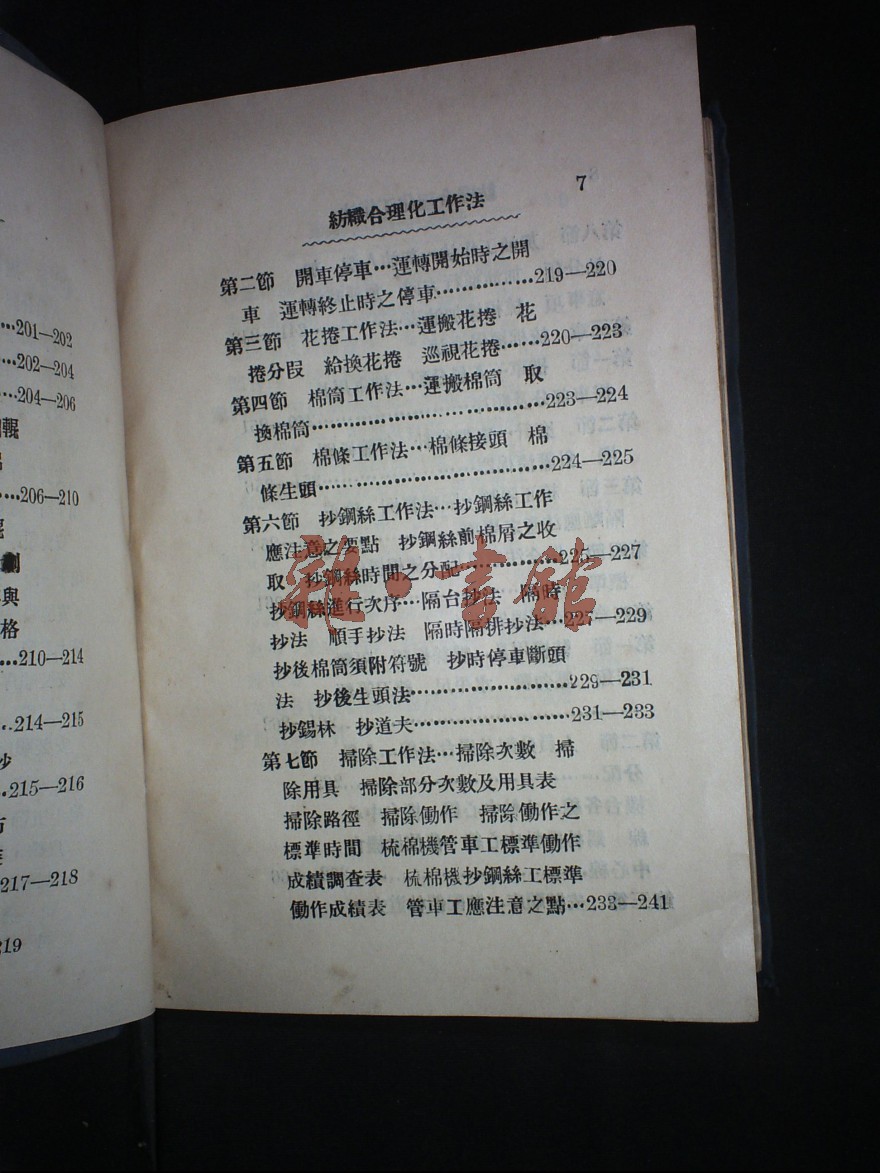 …201—202
…202—204
…204—206
…206—210
劃
與
格
…210—214
…214—215
…215—216
217—218
219
7
紡織合理化工作法
第二節 開車停車…運轉開始時之開
車 運轉終止時之停車……………219—220
第三節 花捲工作法…運搬花捲 花
捲分段 給換花捲 巡視花捲……220—223
第四節 棉筒工作法…運搬棉筒 取
換棉筒……………………………223—224
第五節 棉條工作法…棉條接頭 棉
條生頭……………………………224—225
第六節 抄鋼絲工作法…抄鋼絲工作
應注意之要點 抄鋼絲前棉屑之收
取 抄鋼絲時間之分配……………225—227
抄鋼絲進行次序…隔台抄法 隔時
抄法 順手抄法 隔時隔排抄法……227—229
抄後棉筒須附符號 抄時停車斷頭
法 抄後生頭法……………………229—231
抄錫林 抄道夫……………………231—233
第七節 掃除工作法…掃除次數 掃
除用具 掃除部分次數及用具表
掃除路徑 掃除働作 掃除働作之
標準時間 梳棉機管車工標準働作
成績調查表 梳棉機抄鋼絲工標準
働作成績表 管車工應注意之點…233—241
雜·書館